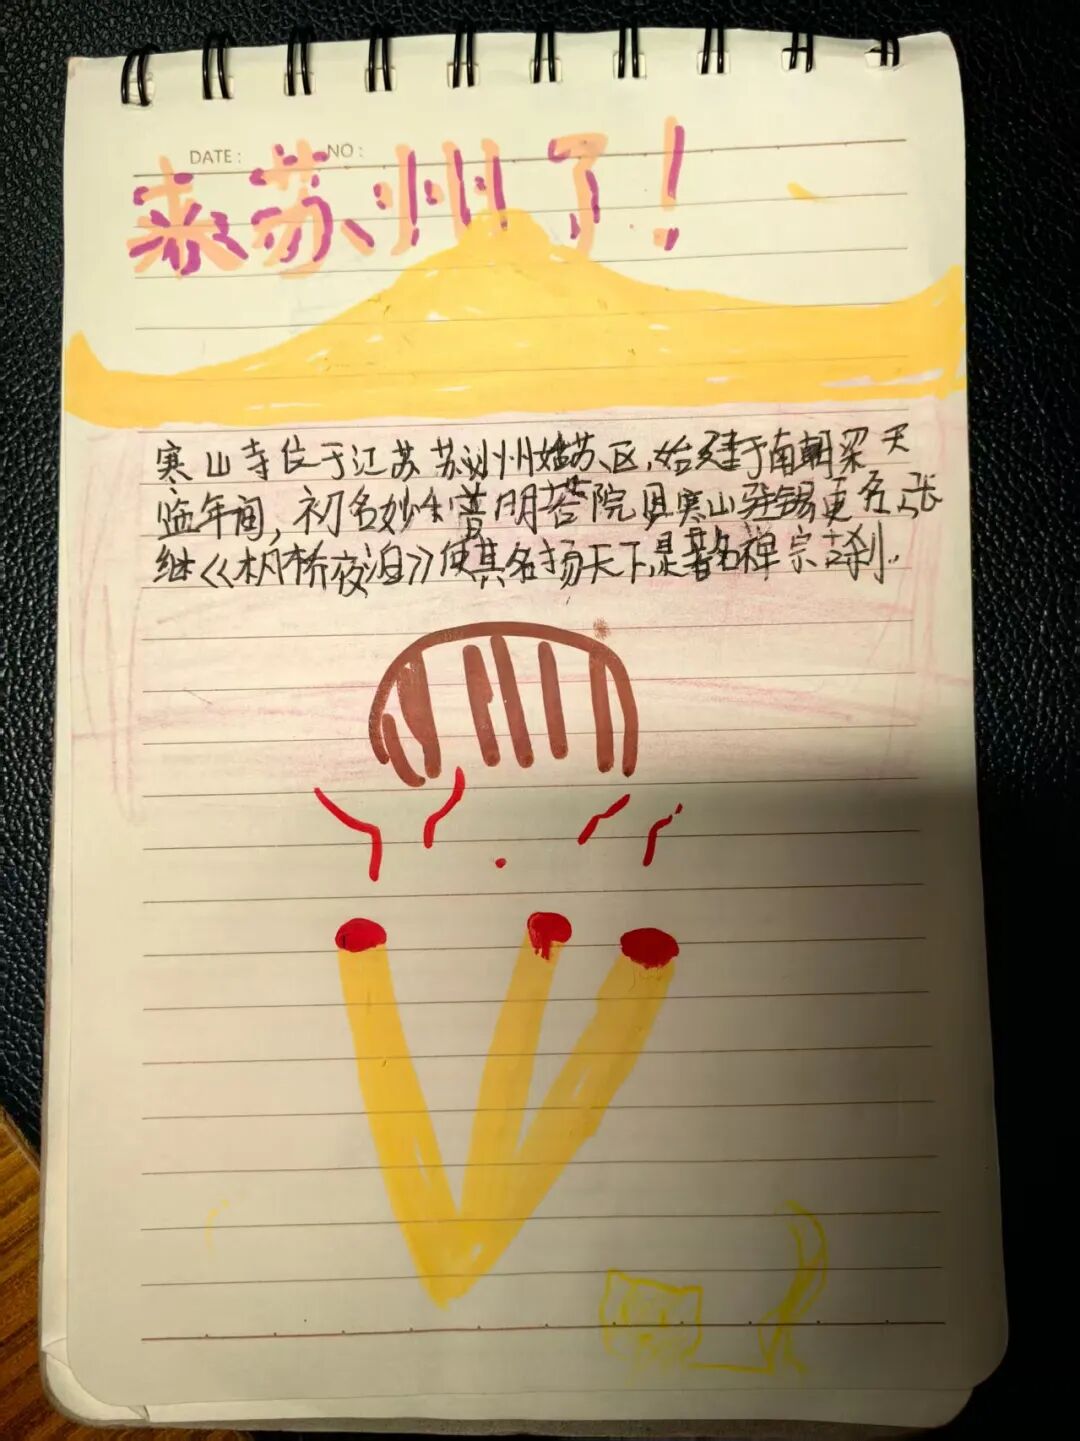 DATE: NO:
来苏州了!
寒山寺位于江苏苏州姑苏区,始建于南朝梁天
监年间,初名妙利普明塔院因寒山驻锡更名,张
继《枫桥夜泊》使其名扬天下,是著名禅宗古刹.